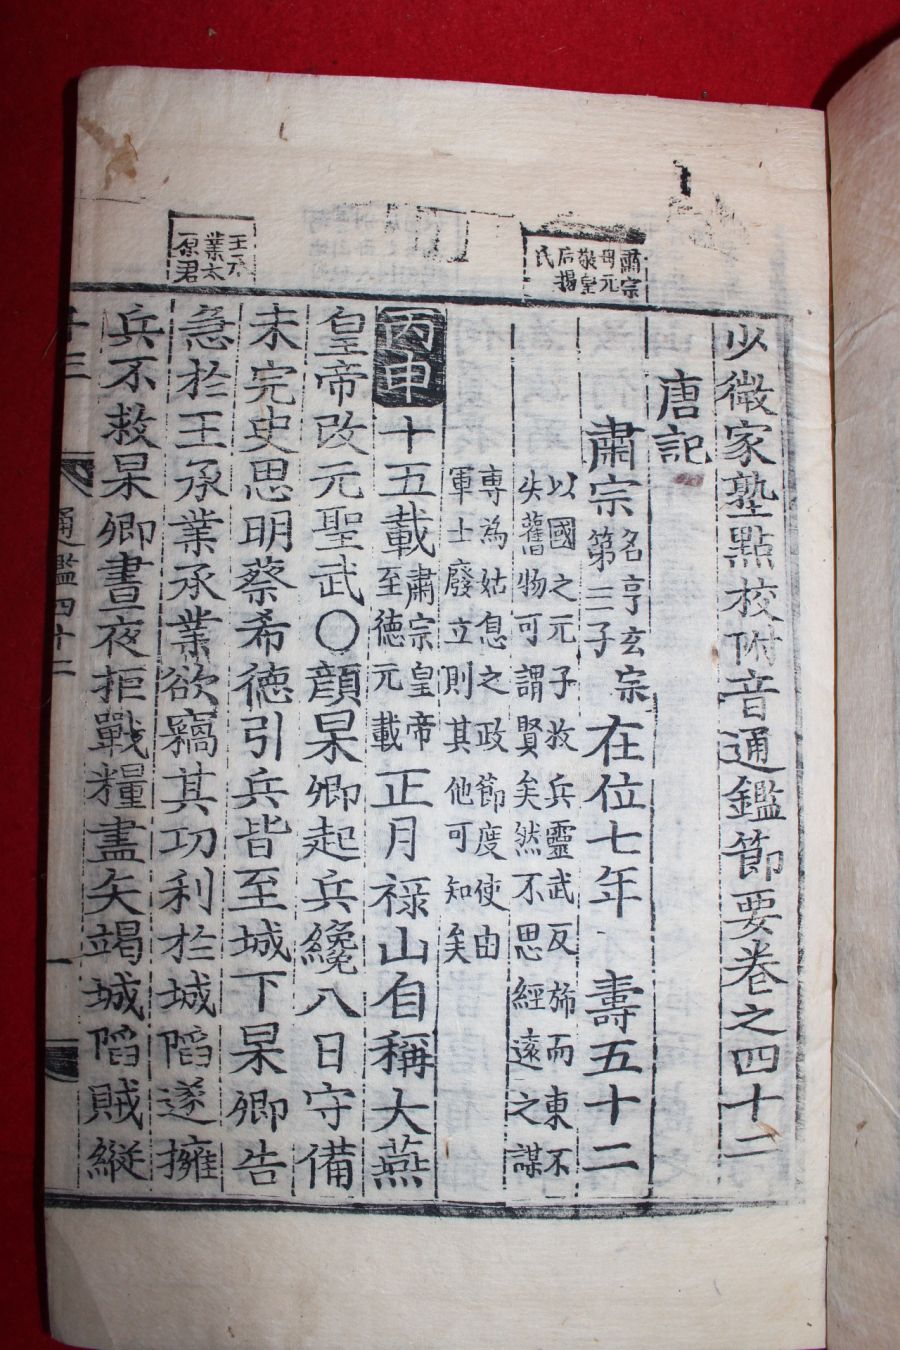 少微家塾點校附音通鑑節要卷之四十二
唐記
肅宗
母元
敬皇
后揚
氏
肅宗名亨玄宗第三子在位七年 壽五十二
以國之元子救兵靈武反旆而東不
失舊物可謂賢矣然不思經遠之謀
專為姑息之政節度使由
軍士廢立則其他可知矣
丙申十五載肅宗皇帝至德元載正月祿山自稱大燕
皇帝改元聖武〇顔杲卿起兵纔八日守備
未完史思明蔡希德引兵皆至城下杲卿告
王承
業太
原君
急於王承業承業欲竊其功利於城陷遂擁
兵不救杲卿晝夜拒戰糧盡矢竭城陷賊縱
通鑑四十二
一